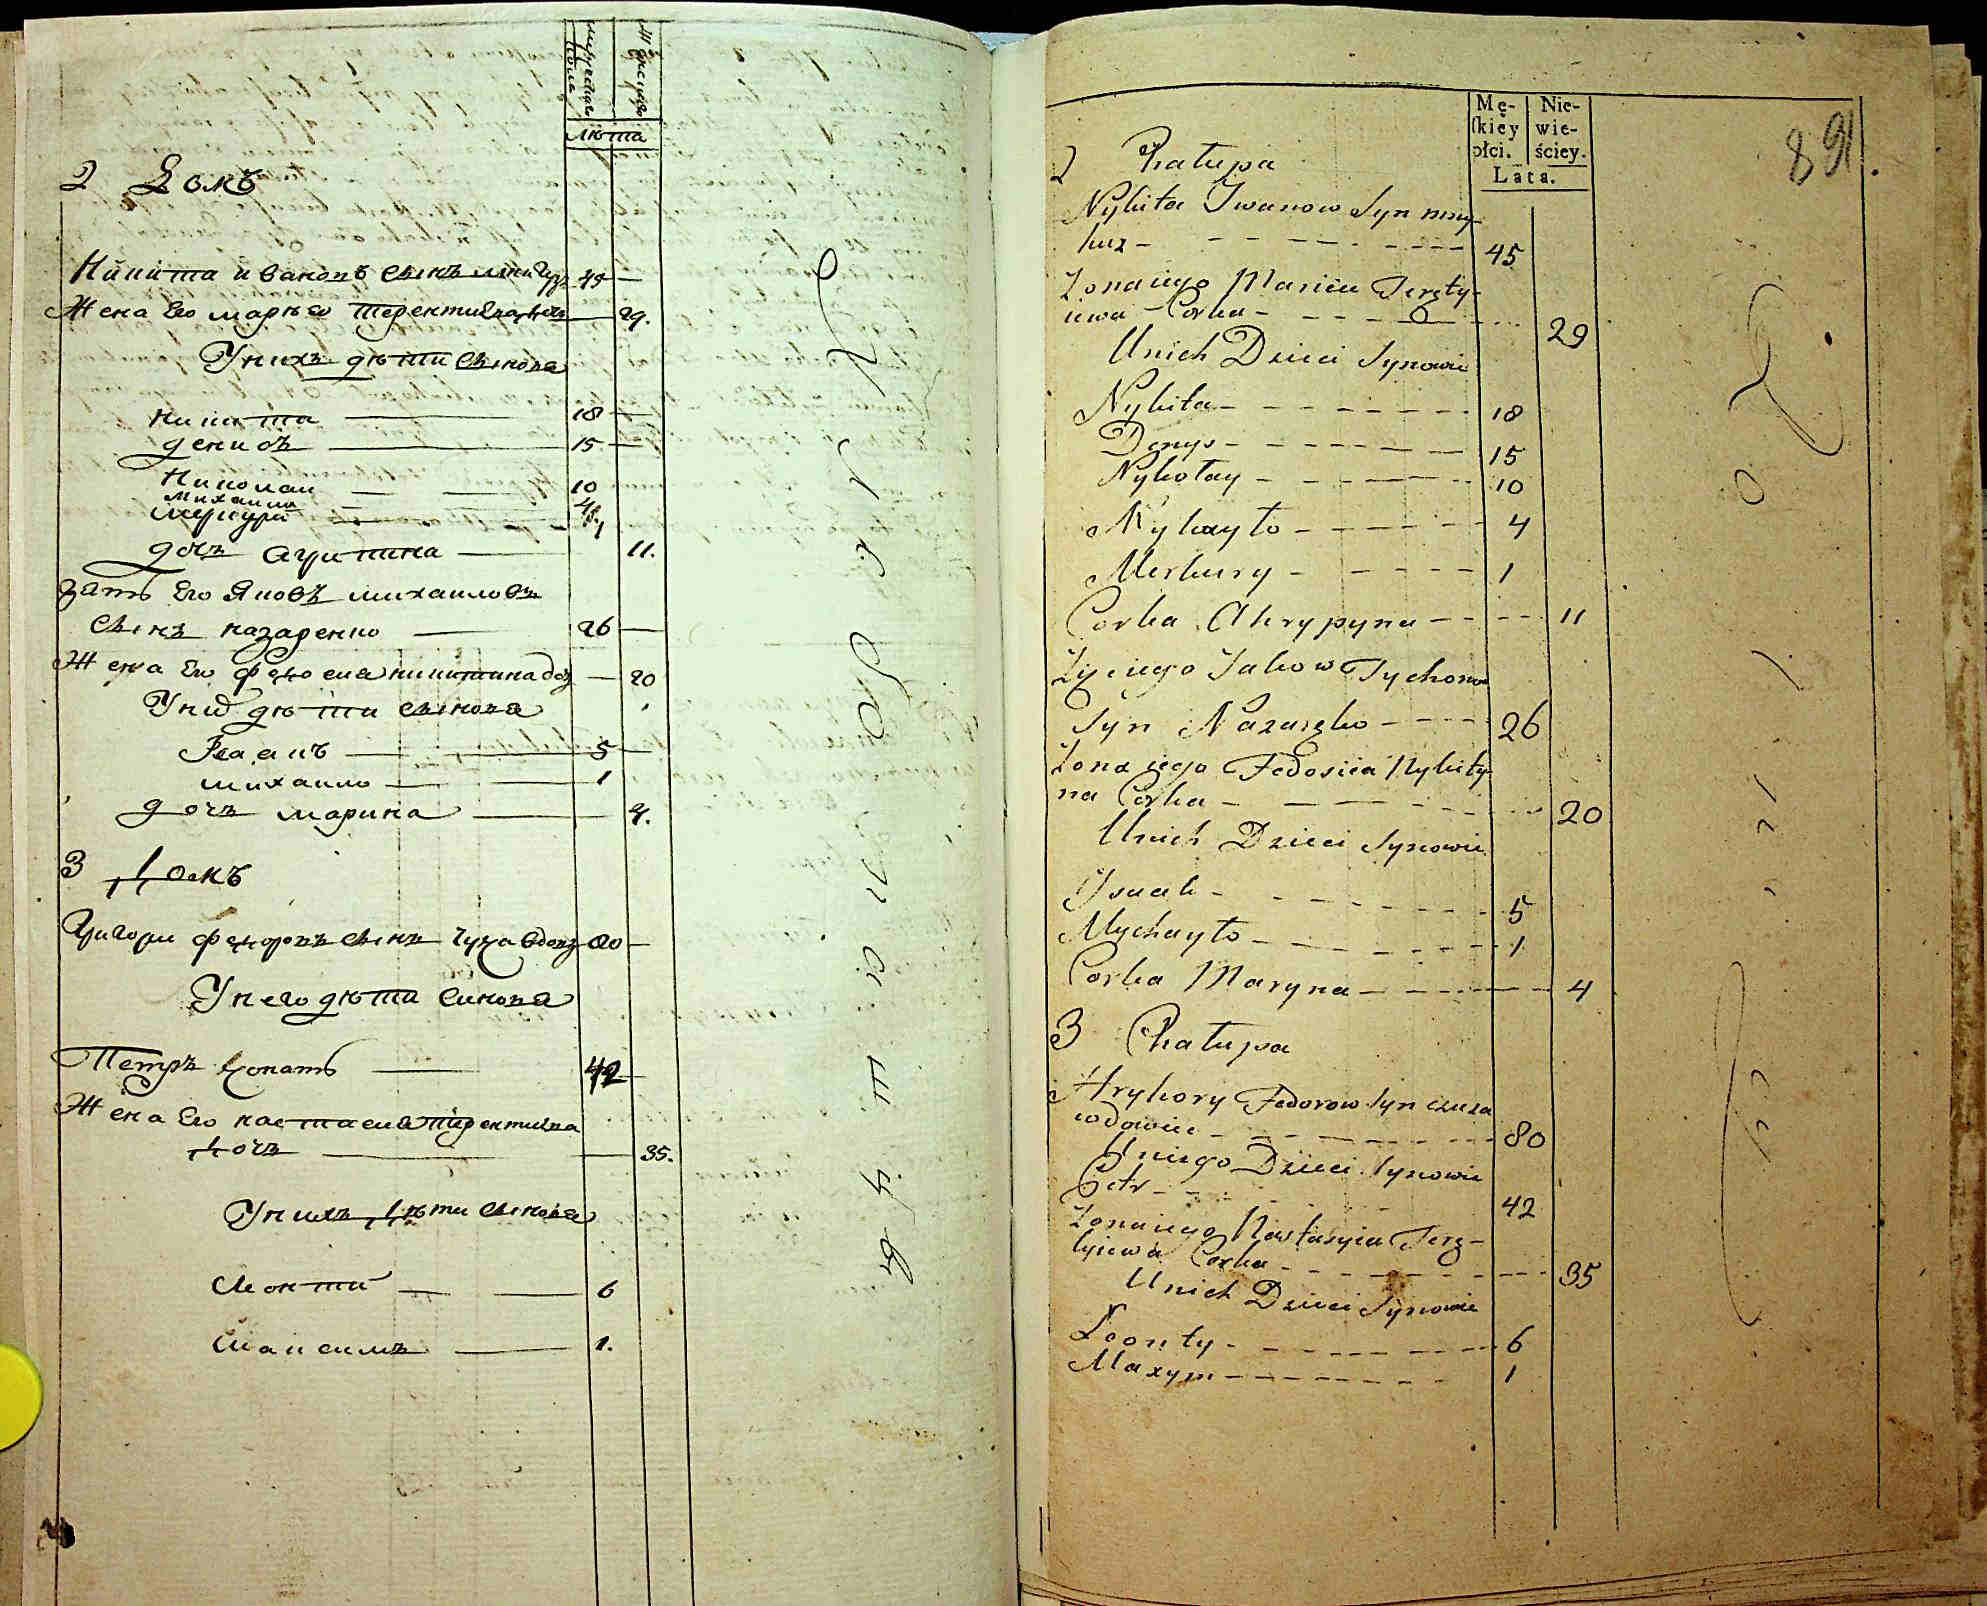 мужеска
пола
женска
лѣта
2 Домъ
Никита Ивановъ сынъ мнигуз 45
Жена Его марѣя Терентиева дочь 29.
У нихъ дѣти сынове
никита 18
денисъ 15
Николаи 10
михаило 4
меркури 1
дочъ Агрипина 11.
зять Его Яковъ михаиловъ
сынъ назаренко 26
Жена Его федосия никитина доч 20
У них дѣти сынове
Исаакъ 5
михаило 1
дочъ марина 4.
3 Домъ
Григори федоровъ сынъ Чуза вдовец 80
У него дѣти синове
Петръ 42
Жена Его настасия терентиева
дочъ 35.
У нихъ дѣти сынове
Леонтий 6
Максимъ 1.
Mę-
skiey
płci.
Nie-
wie-
ściey.
Lata.
891.
2 Chałupa
Nykita Iwanow Syn mny-
huz 45
Żona iego Maria Terety-
iewa Corka 29
Unich Dzieci Synowie
Nykita 18
Denys 15
Nykołay 10
Mykayło 4
Merkury 1
Corka Ahrypyna 11
Zięć iego Jakow Tychonow
Syn Nazaręko 26
Żona iego Fedosiia Nykity-
na Corka 20
Unich Dzieci Synowie
Ysaak 5
Mychayło 1
Corka Maryna 4
3 Chałupa
Hryhory Fedorow Syn czuza
wdowiec 80
Uniego Dzieci Synowie
Petr 42
Żona iego Nastasyia Terę-
tyiewa Corka 35
Unich Dzieci Synowie
Leonty 6
Maxym 1